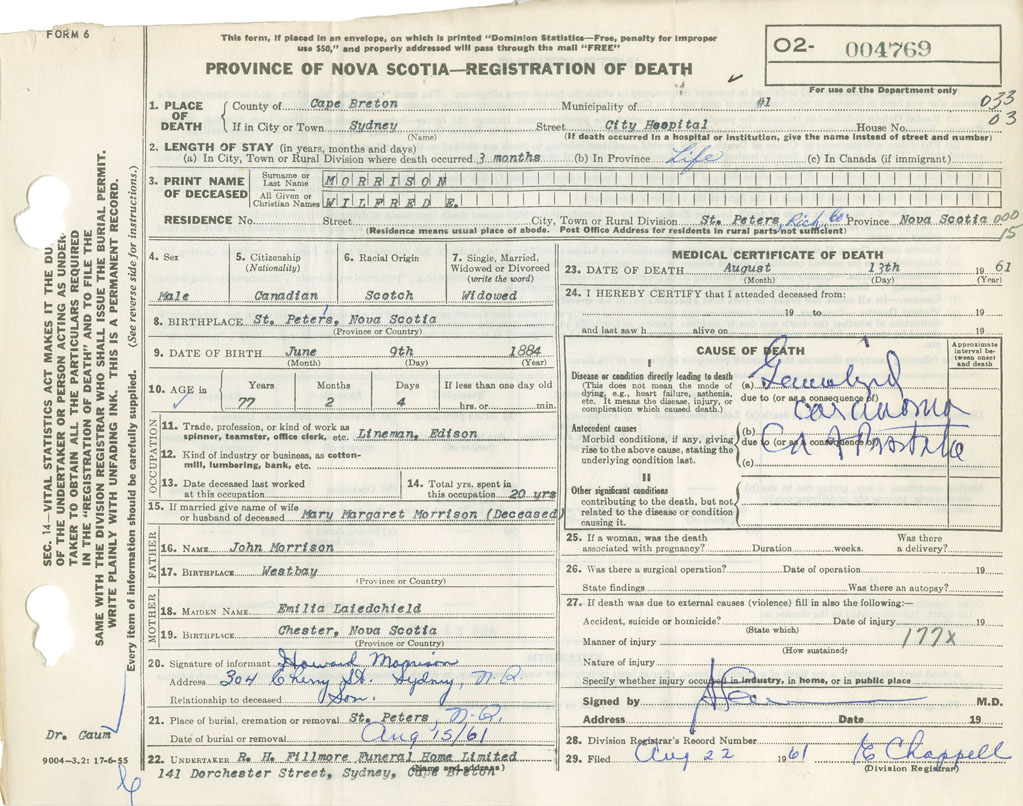 FORM 6
This form, if placed in an envelope, on which is printed "Dominion Statistics—Free, penalty for improper
use $50," and properly addressed will pass through the mail "FREE"
PROVINCE OF NOVA SCOTIA—REGISTRATION OF DEATH
O2- 004769
For use of the Department only
1. PLACE OF DEATH
County of Cape Breton Municipality of #1 033
If in City or Town Sydney Street City Hospital House No. 03
(Name) (If death occurred in a hospital or institution, give the name instead of street and number)
2. LENGTH OF STAY (in years, months and days)
(a) In City, Town or Rural Division where death occurred 3 months (b) In Province Life (c) In Canada (if immigrant)
3. PRINT NAME OF DECEASED
Surname or Last Name MORRISON
All Given or Christian Names WILFRED E.
RESIDENCE No. Street City, Town or Rural Division St. Peters, Rich. Co Province Nova Scotia 000
(Residence means usual place of abode. Post Office Address for residents in rural parts not sufficient) 15
4. Sex
Male
5. Citizenship
(Nationality)
Canadian
6. Racial Origin
Scotch
7. Single, Married,
Widowed or Divorced
(write the word)
Widowed
8. BIRTHPLACE St. Peter's, Nova Scotia
(Province or Country)
9. DATE OF BIRTH June 9th 1884
(Month) (Day) (Year)
10. AGE in
Years Months Days If less than one day old
77 2 4 hrs. or min.
OCCUPATION
11. Trade, profession, or kind of work as
spinner, teamster, office clerk, etc. Lineman, Edison
12. Kind of industry or business, as cotton-
mill, lumbering, bank, etc.
13. Date deceased last worked
at this occupation
14. Total yrs. spent in
this occupation 20 yrs
15. If married give name of wife
or husband of deceased Mary Margaret Morrison (Deceased)
FATHER
16. NAME John Morrison
17. BIRTHPLACE Westbay
(Province or Country)
MOTHER
18. MAIDEN NAME Emilia Laiedchield
19. BIRTHPLACE Chester, Nova Scotia
(Province or Country)
20. Signature of informant Howard Morrison
Address 304 Cherry St. Sydney, N.S.
Relationship to deceased Son.
21. Place of burial, cremation or removal St. Peters, N.S.
Date of burial or removal Aug 15/61
22. UNDERTAKER R. H. Fillmore Funeral Home Limited
(Name and address)
141 Dorchester Street, Sydney, Cape Breton
MEDICAL CERTIFICATE OF DEATH
23. DATE OF DEATH August 13th 1961
(Month) (Day) (Year)
24. I HEREBY CERTIFY that I attended deceased from:
19 to 19
and last saw h alive on 19
CAUSE OF DEATH
Approximate
interval be-
tween onset
and death
I
Disease or condition directly leading to death
(This does not mean the mode of
dying, e.g., heart failure, asthenia,
etc. It means the disease, injury, or
complication which caused death.)
(a) Generalized
due to (or as a consequence of)
carcinoma
Antecedent causes
Morbid conditions, if any, giving
rise to the above cause, stating the
underlying condition last.
(b)
due to (or as a consequence of)
Ca of Prostate
(c)
II
Other significant conditions
contributing to the death, but not
related to the disease or condition
causing it.
25. If a woman, was the death
associated with pregnancy? Duration weeks. Was there
a delivery?
26. Was there a surgical operation? Date of operation 19
State findings Was there an autopsy?
27. If death was due to external causes (violence) fill in also the following:—
Accident, suicide or homicide? Date of injury 19
(State which)
Manner of injury 177X
(How sustained)
Nature of injury
Specify whether injury occurred in industry, in home, or in public place
Signed by M.D.
Address Date 19
28. Division Registrar's Record Number
29. Filed Aug 22 1961 E Chappell
(Division Registrar)
SEC. 14—VITAL STATISTICS ACT MAKES IT THE DU
OF THE UNDERTAKER OR PERSON ACTING AS UNDER-
TAKER TO OBTAIN ALL THE PARTICULARS REQUIRED
IN THE "REGISTRATION OF DEATH" AND TO FILE THE
SAME WITH THE DIVISION REGISTRAR WHO SHALL ISSUE THE BURIAL PERMIT.
WRITE PLAINLY WITH UNFADING INK. THIS IS A PERMANENT RECORD.
Every item of information should be carefully supplied. (See reverse side for instructions.)
Dr. Gaum
9004-3.2: 17-6-55